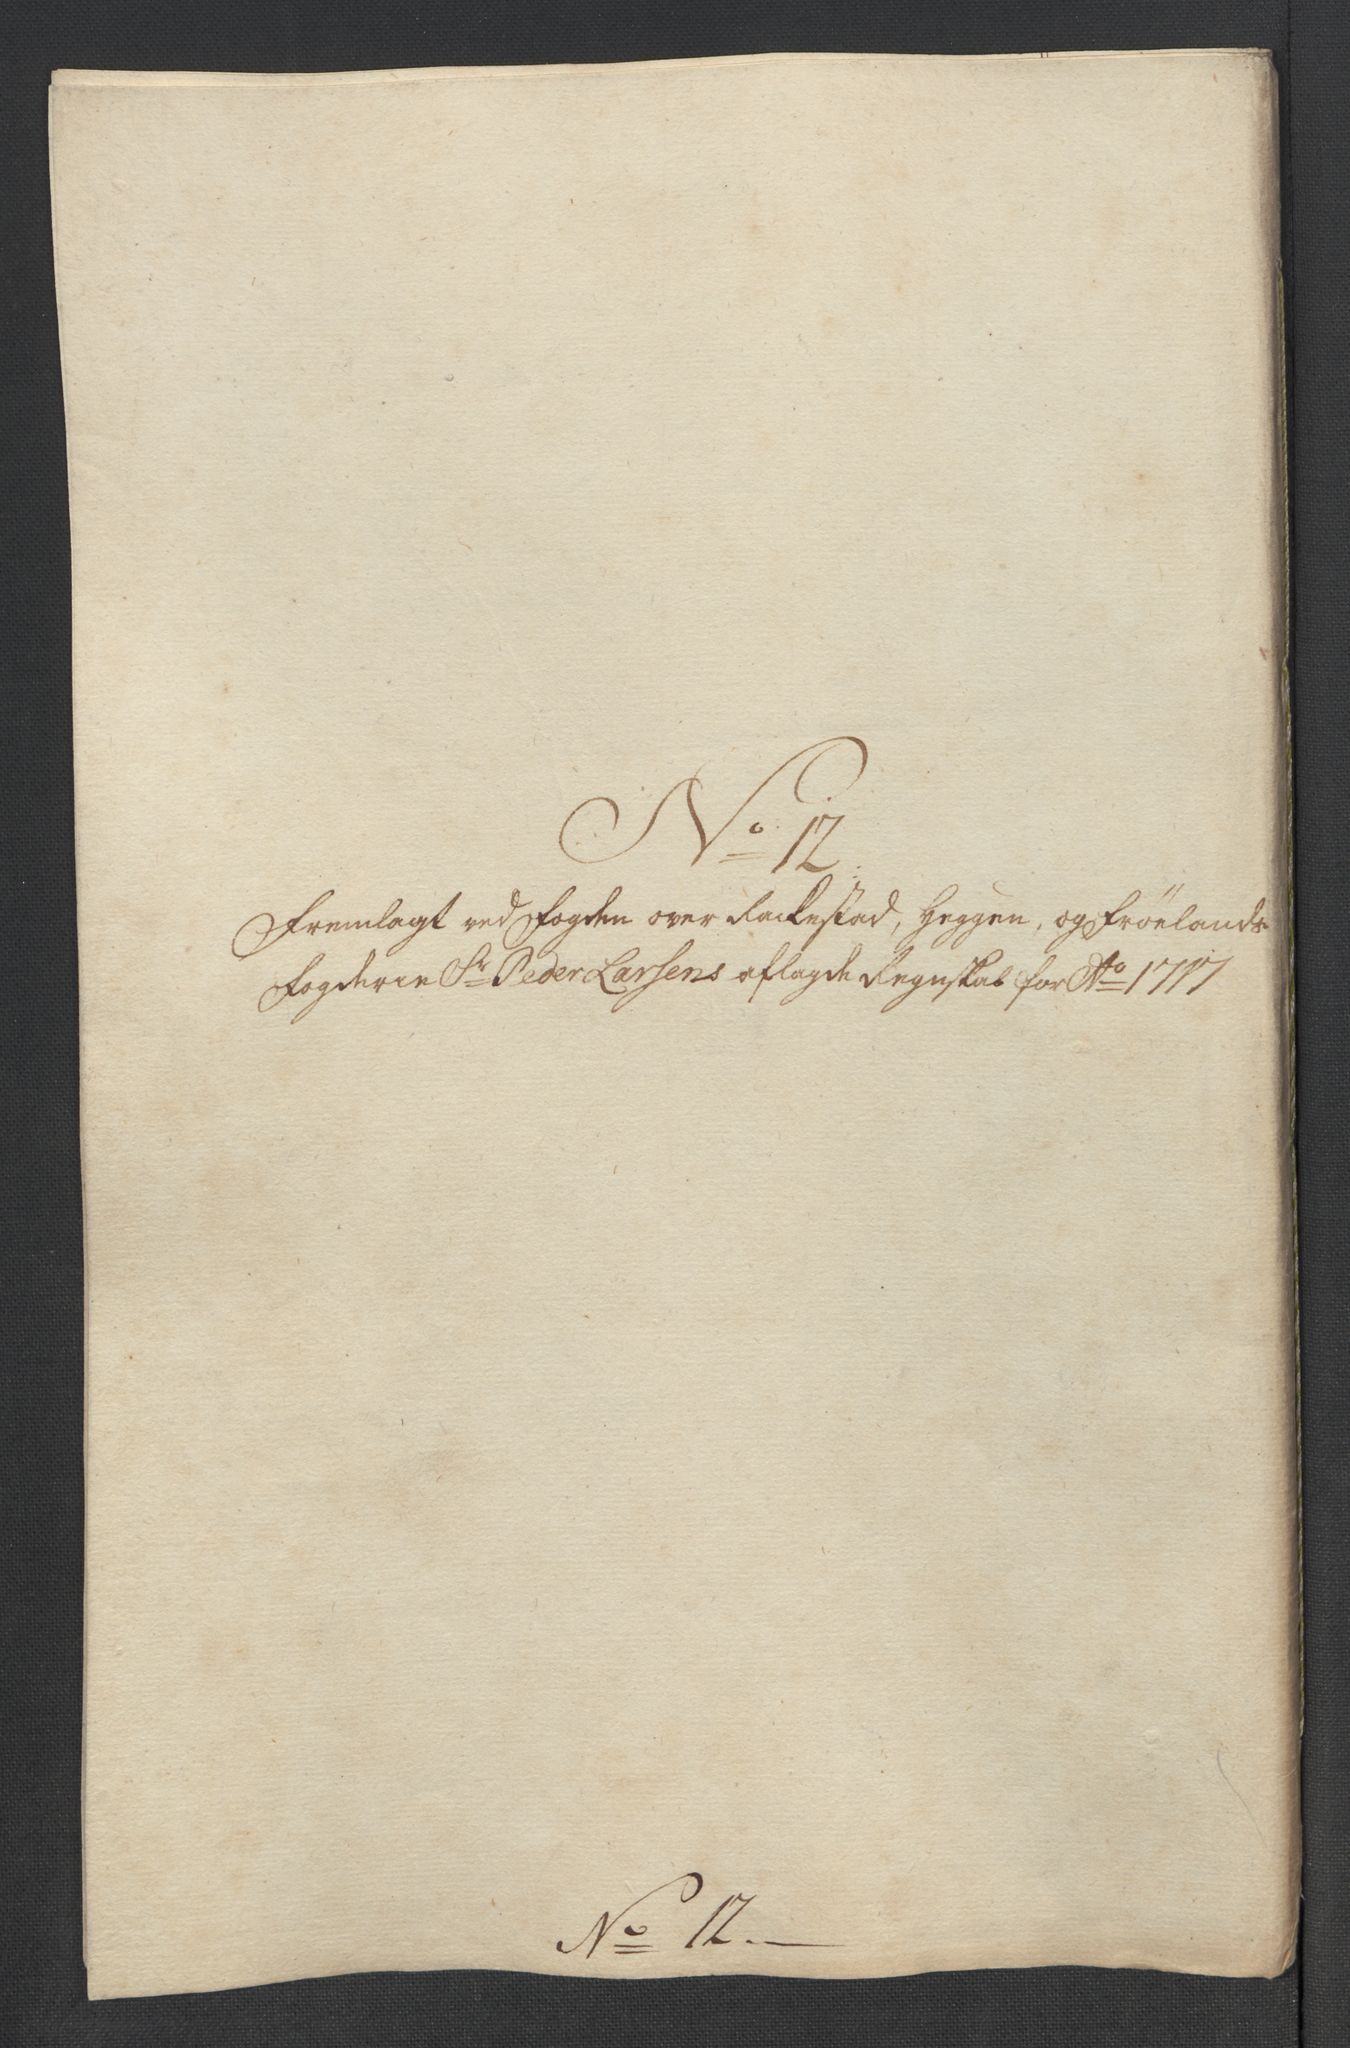 No 12
Fremlagt ved Fogden over Rackestad, Heggen, og Fröelands
Fogderie Sr Peder Larsens aflagde Regnskab for Ao 1717
No 12.